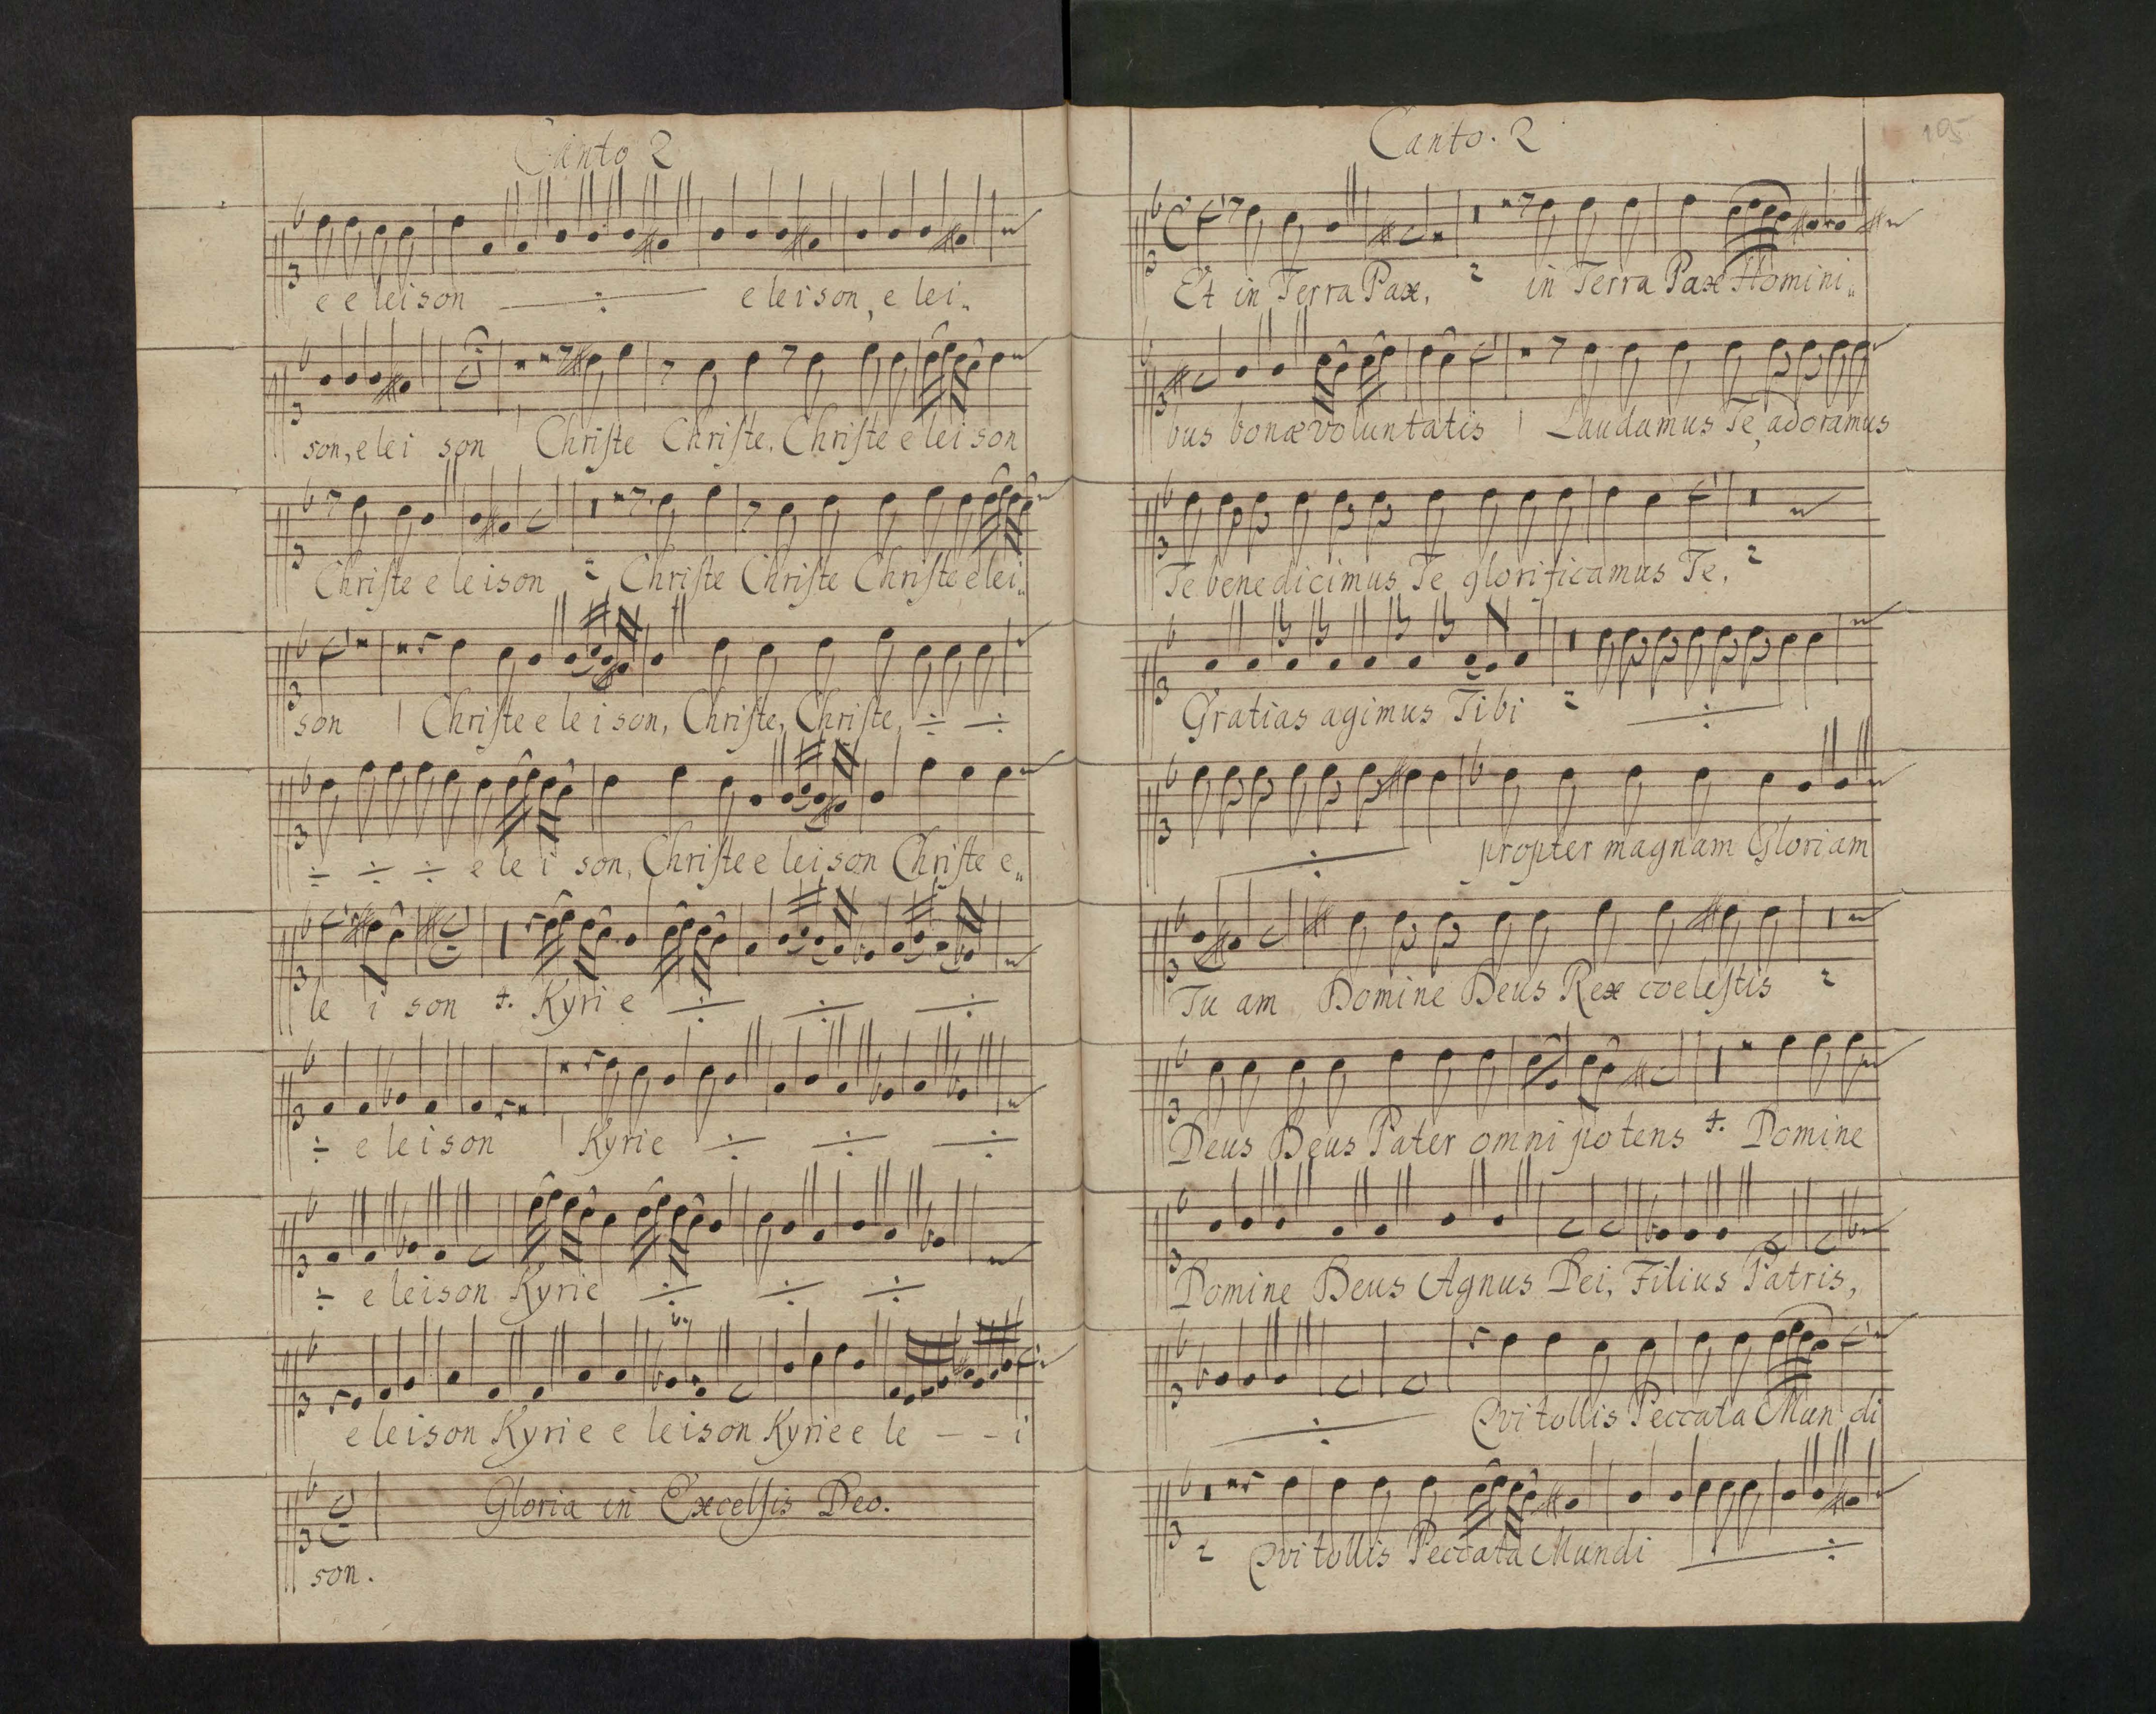 Canto 2
e e leison ÷ e leison, e lei„
son, e lei son Chriſte Chriſte, Chriſte e lei son
Chriſte e leison 2 Chriſte Chriſte Chriſte e lei„
son Chriſte e le i son, Chriſte, Chriſte, ÷ ÷
÷ ÷ ÷ e le i son, Chriſte e leison Chriſte e„
le i son 4. Kyrie ÷ ÷ ÷
÷ e leison Kyrie ÷ ÷ ÷
÷ e leison Kyrie ÷ ÷ ÷
e leison Kyrie e leison Kyrie e le - - i
Gloria in Excelſis Deo.
son.
Canto. 2
105
Et in Terra Pax, 2 in Terra Pax Homini„
bus bonæ voluntatis Laudamus Te, adoramus
Te benedicimus Te glorificamus Te, 2
Gratias agimus Tibi 2 ÷
÷ propter magnam Gloriam
Tu am Domine Deus Rex cœleſtis 2
Deus Deus Pater omni potens 4. Domine
Domine Deus Agnus Dei, Filius Patris,
÷ Qvi tollis Peccata Mun di
2 Qvi tollis Peccata Mundi ÷